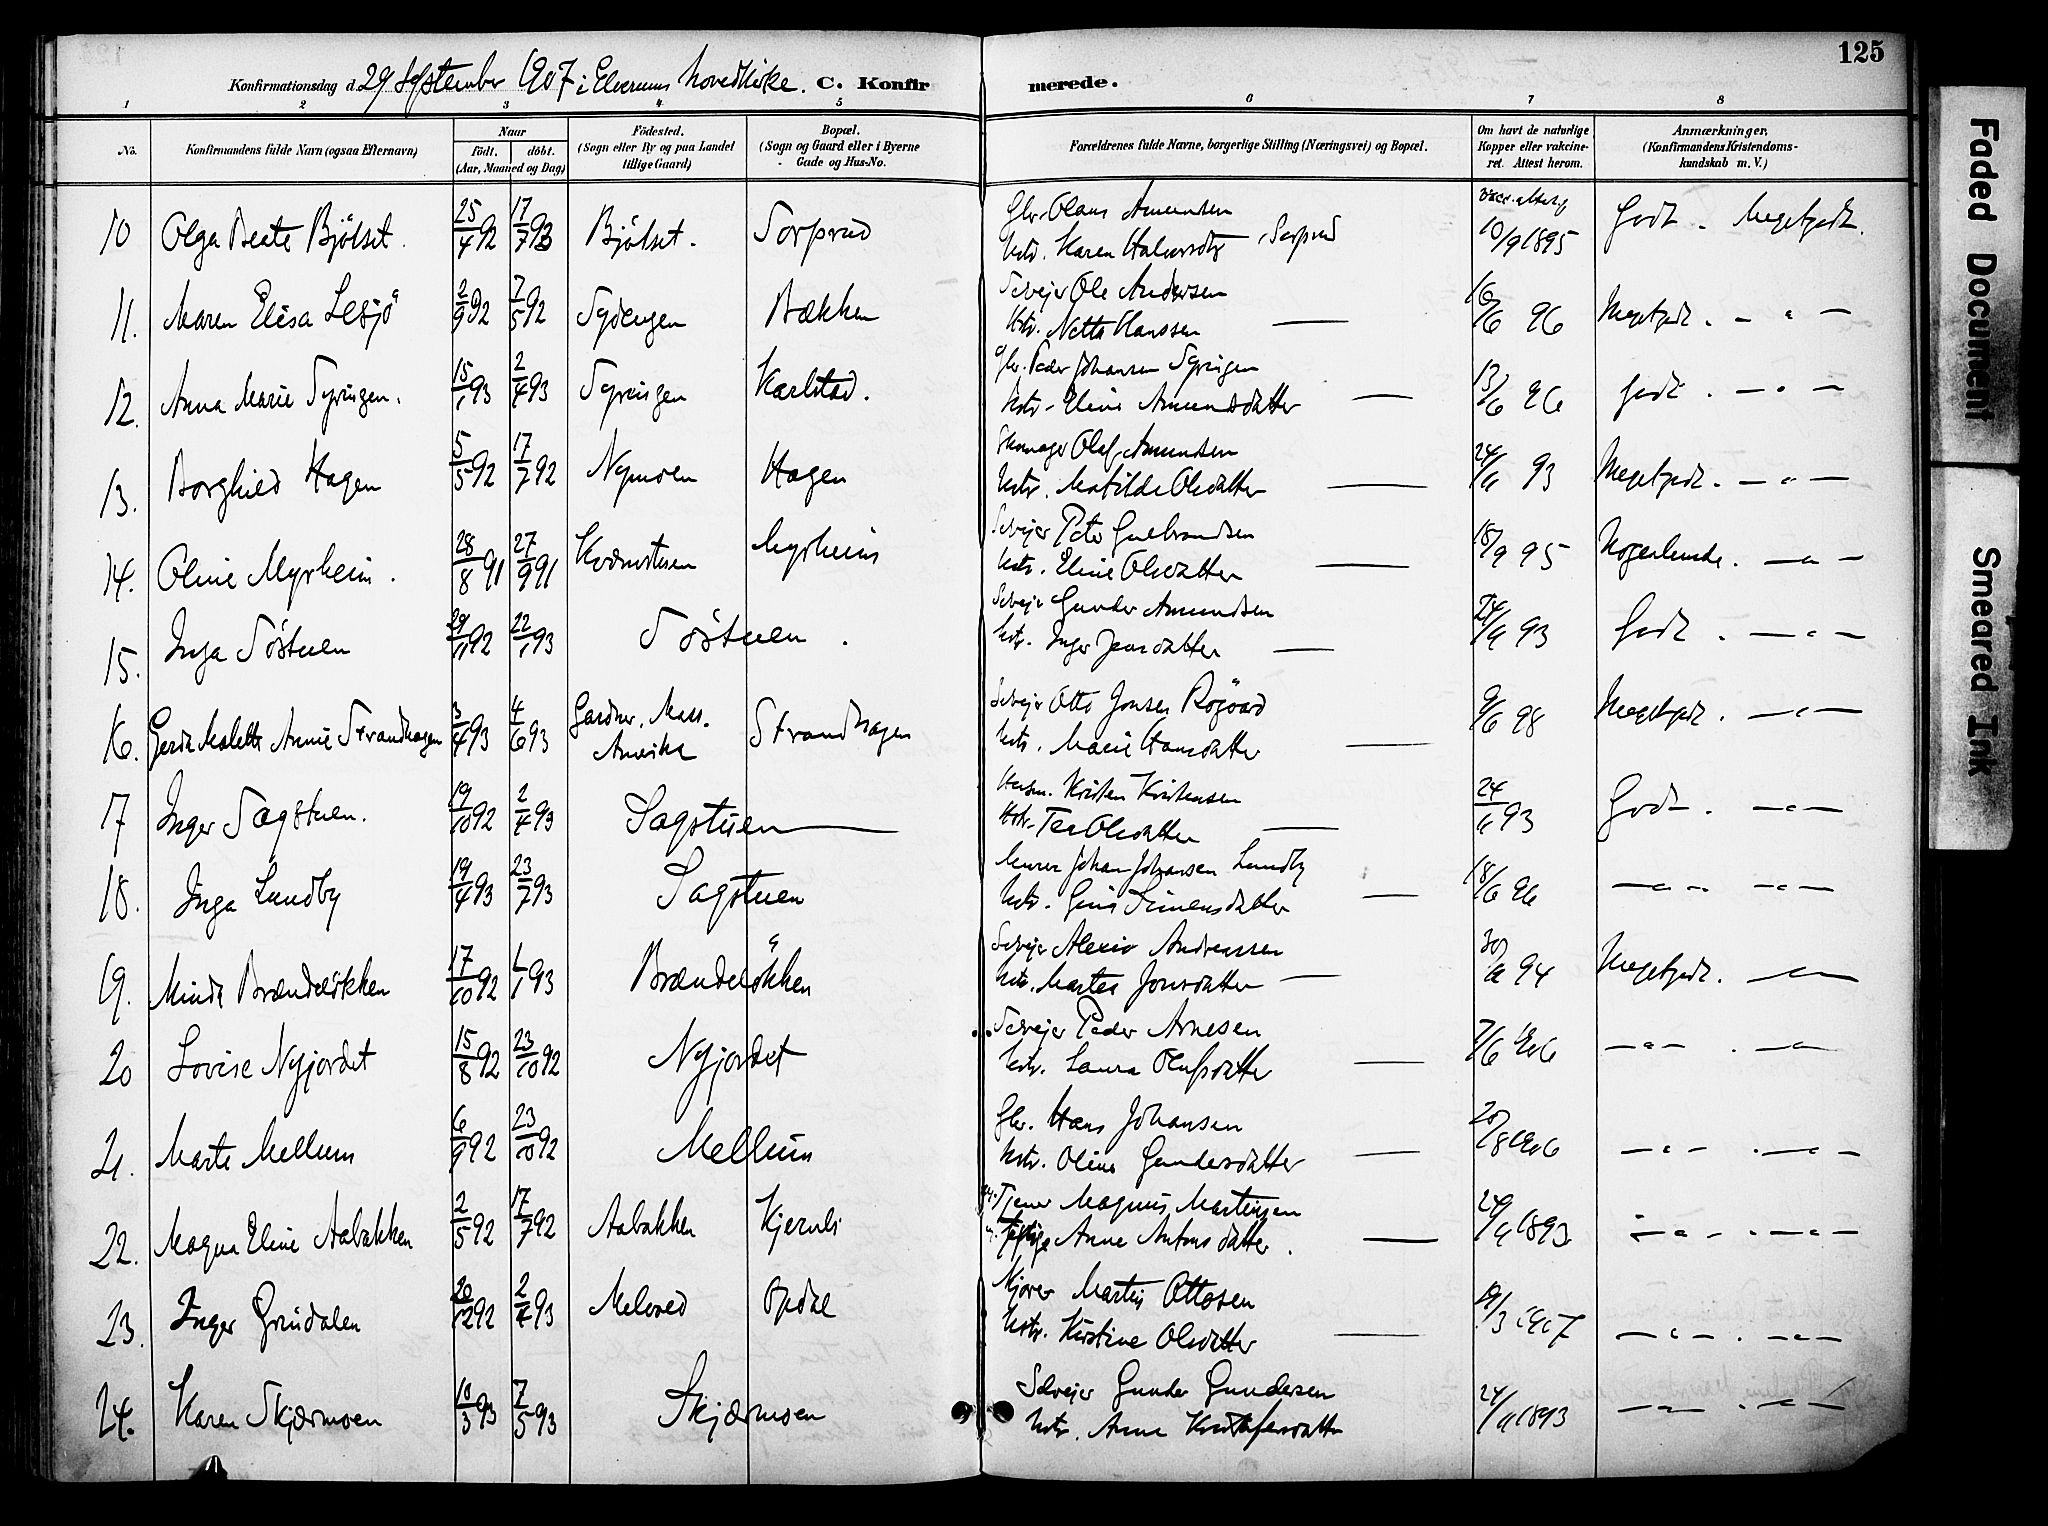 125
Konfirmationsdag d. 29 September 1907 i Elverum Hovedkirke. C. Konfirmerede.
1 2 3 4 5 6 7 8
No. Konfirmandens fulde Navn (ogsaa Efternavn) Naar født, døbt. (Aar, Maaned og Dag) Födested. (Sogn eller By og paa Landet tillige Gaard) Bopæl. (Sogn og Gaard eller i Byerne Gade og Hus-No. Forældrenes fulde Navne, borgerlige Stilling (Næringsvei) og Bopæl. Om havt de naturlige Kopper eller vakcineret. Attest herom. Anmærkninger. (Konfirmandens Kristendomskundskab m. V.)
10 Olga Beate Bjölset. 25/4 92 17/7 93 Bjölset. Sorprud Gbr. Olaus Amundsen 10/9 1895 Godt. Megetgodt.
Hstr. Karen Halvorsdtr, Sorprud
11. Maren Elisa Lesjö 2/9 92 7/5 92 Sydengen Bækken Selvejer Ole Andersen 16/6 96 Megetgodt. - " -
Hstr. Netta Hanssen —
12. Anna Marie Syringen. 15/1 93 2/4 93 Syringen Karlstad. Gbr. Peder Johansen Syringen 13/6 96 Godt. - " -
Hstr. Eline Amundsdatter —
13. Borghild Hagen 5/5 92 17/7 92 Nymoen Hagen Skomager Olaf Amundsen 24/4 93 Megetgodt. - " -
Hstr. Matilde Olsdatter —
14. Oline Myrheim. 28/8 91 27/9 91 Kværnstuen Myrheim Selvejer Peter Gulbrandsen 18/9 95 Nogenlunde. - " -
Hstr. Eline Olsdatter —
15. Inga Söstuen 29/11 92 22/1 93 Söstuen. Selvejer Gunder Amundsen 24/4 93 Godt. - " -
Hstr. Inger Jensdatter —
16. Gerda Malette Annie Strandhagen 3/4 93 4/6 93 Gardner, Mass. Amerika Strandhagen Selvejer Otto Jonsen 9/6 98 Megetgodt. - " -
Hstr. Marie Hansdatter —
17 Inger Sagstuen. 19/10 92 2/4 93 Sagstuen — Kristen Kristensen 24/4 93 Godt. - " -
Hstr. Tea Olsdatter —
18. Inga Lundby 19/4 93 23/7 93 Sagstuen Murer Johan Johansen Lundby 18/6 96 - " - - " -
Hstr. Gina Simensdatter —
19. Minda Brændeløkken 17/10 92 1/1 93 Brændeløkken Selvejer Alexis Andreassen 30/4 94 Megetgodt. - " -
Hstr. Martea Jonsdatter —
20 Lovise Nyjordet 15/8 92 23/10 92 Nyjordet Selvejer Peder Arnesen 7/6 1906 - " - . - " -
Hstr. Laura Olufsdatter —
21. Marte Mellum 6/9 92 23/10 92 Mellum Gbr. Hans Johansen 20/8 1906 - " - . - " -
Hstr. Oline Gundersdatter —
22. Magna Eline Aabakken 2/5 92 17/7 92 Aabakken Kjernli Tjener Magnus Martinsen 24/4 1893 - " - . - " -
Anne Antonsdatter. —
23. Inger Grindalen 20/12 92 2/4 93 Melvold Opdal Martin Ottosen 19/3 1907 - " - . - " -
Hstr. Kirstine Olsdatter —
24. Karen Skjærmoen 10/3 93 7/5 93 Skjærmoen Selvejer Gunder Gundersen 24/4 1893 - " - . - " -
Hstr. Anne Kristofersdatter
Faded Document
Smeared Ink